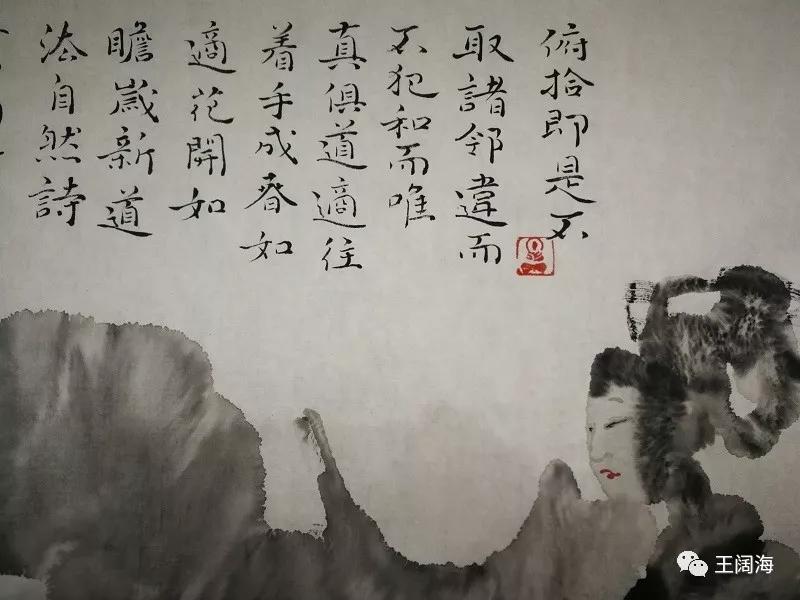 俯拾即是不
取諸邻違而
不犯和而唯
真俱道適往
着手成春如
適花開如
瞻嵗新道
法自然詩
王阔海